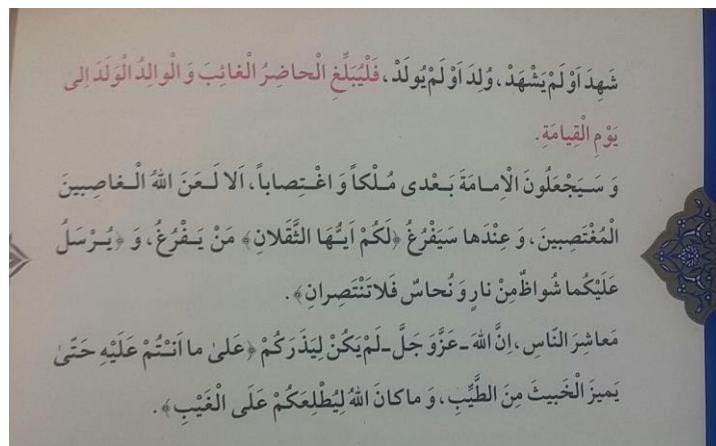 شَهِدَ اَوْ لَمْ يَشْهَدْ، وُلِدَ اَوْ لَمْ يُولَدْ، فَلْيُبَلِّغِ الْحاضِرُ الْغائِبَ وَ الْوالِدُ الْوَلَدَ اِلى
يَوْمِ الْقِيامَةِ.
وَ سَـيَجْعَلُونَ الْاِمـامَةَ بَـعْدى مُـلْكاً وَ اغْـتِصاباً، اَلا لَـعَنَ اللهُ الْـغاصِبينَ
الْمُغْتَصِبينَ، وَ عِنْدَها سَيَفْرُغُ ﴿لَكُمْ اَيُّـهَا الثَّقَلانِ﴾ مَنْ يَـفْرُغُ، وَ ﴿يُـرْسَلُ
عَلَيْكُما شُواظٌ مِنْ نارٍ وَ نُحاسٌ فَلا تَنْتَصِرانِ﴾.
مَعاشِرَ النّاسِ، اِنَّ اللهَ ـ عَزَّ وَ جَلَّ ـ لَمْ يَكُنْ لِيَذَرَكُمْ ﴿عَلىٰ ما اَنْـتُمْ عَلَيْهِ حَتّىٰ
يَميزَ الْخَبيثَ مِنَ الطَّيِّبِ، وَ ما كانَ اللهُ لِيُطْلِعَكُمْ عَلَى الْغَيْبِ﴾.